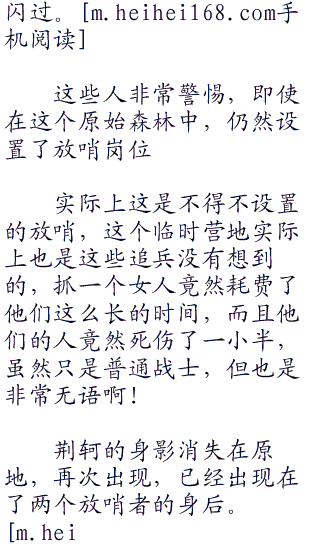 闪过。[m.heihei168.com手
机阅读]
这些人非常警惕，即使
在这个原始森林中，仍然设
置了放哨岗位
实际上这是不得不设置
的放哨，这个临时营地实际
上也是这些追兵没有想到
的，抓一个女人竟然耗费了
他们这么长的时间，而且他
们的人竟然死伤了一小半，
虽然只是普通战士，但也是
非常无语啊！
荆轲的身影消失在原
地，再次出现，已经出现在
了两个放哨者的身后。
[m.hei